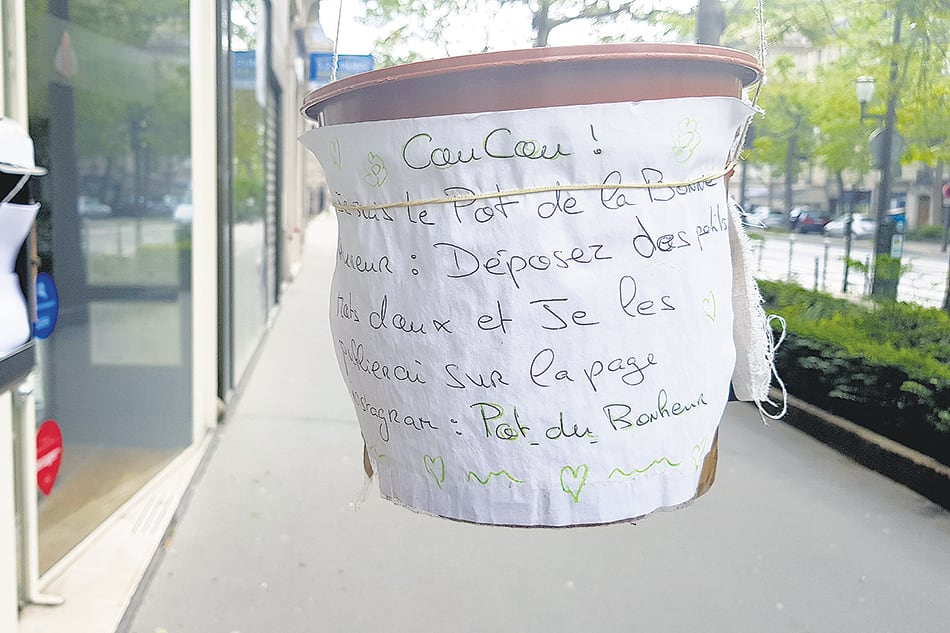 CouCou !
Je suis le Pot de la Bonne
Humeur : Déposez des petits
mots doux et Je les
publierai sur la page
Instagram : Pot_du_Bonheur